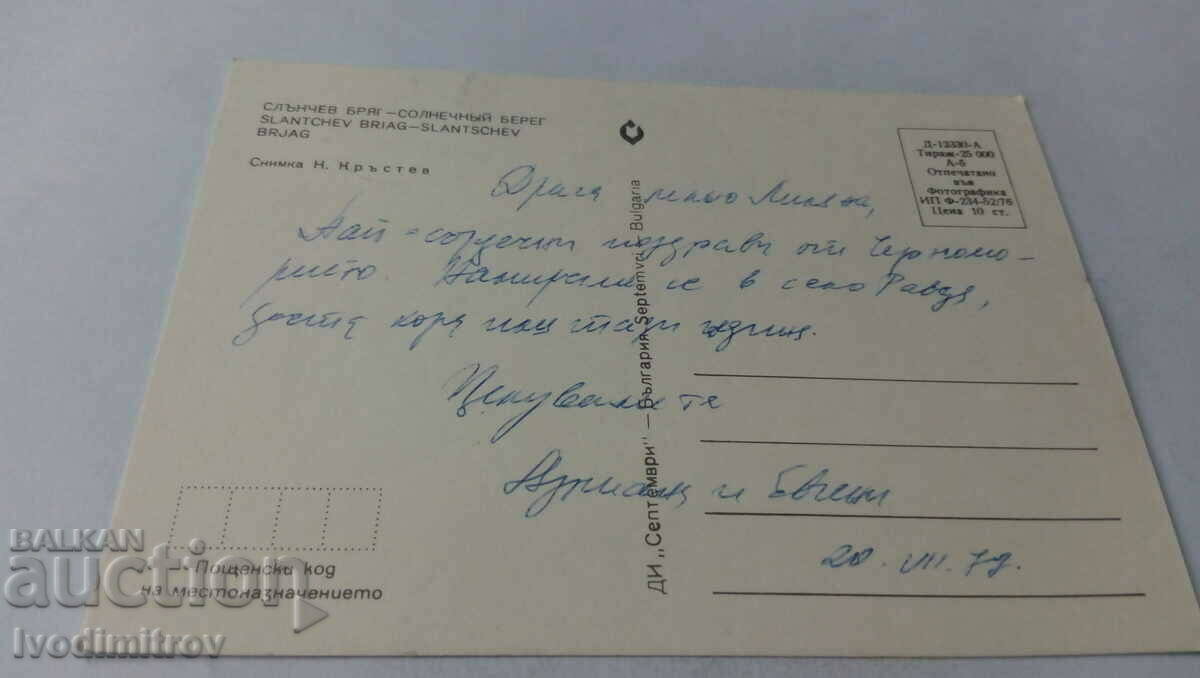 СЛЪНЧЕВ БРЯГ—СОЛНЕЧНЫЙ БЕРЕГ
SLANTCHEV BRIAG—SLANTSCHEV
BRJAG
Снимка Н. Кръстев
Д-12330-А
Тираж-25 000
А-6
Отпечатано
във
Фотографика
ИП Ф-234-52/76
Цена 10 ст.
Драга лельо Лиляна,
Най-сърдечни поздрави от Черномо-
рието. Намираме се в село Равда,
доста хора има тази година.
Целуваме те
и Евгени
20. VII. 79.
ДИ „Септември" — България Septemvri — Bulgaria
Пощенски код
на местоназначението
BALKAN
auction
Ivodimitrov